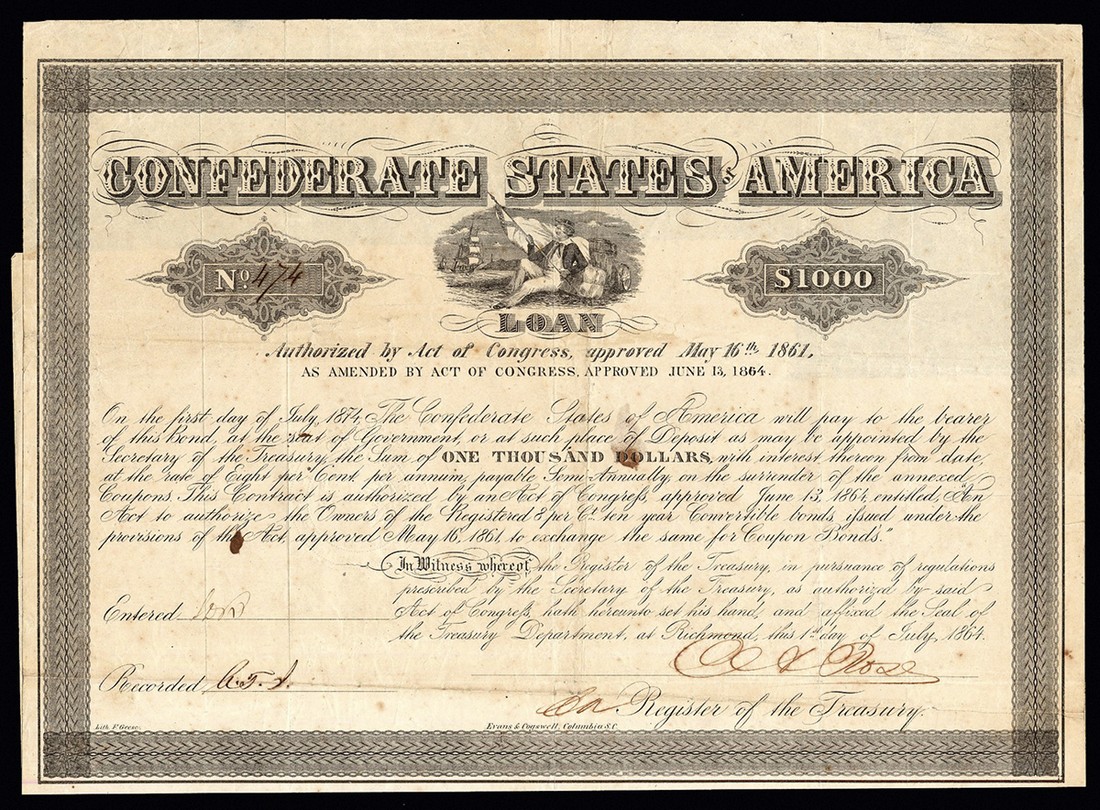 CONFEDERATE STATES OF AMERICA
No. 474
$1000
LOAN
Authorized by Act of Congress, approved May 16th 1861,
AS AMENDED BY ACT OF CONGRESS, APPROVED JUNE 13, 1864.
On the first day of July, 1874, The Confederate States of America will pay to the bearer
of this Bond, at the seat of Government, or at such place of Deposit as may be appointed by the
Secretary of the Treasury, the Sum of ONE THOUSAND DOLLARS, with interest thereon from date,
at the rate of Eight per Cent. per annum, payable Semi-Annually, on the surrender of the annexed
Coupons. This Contract is authorized by an Act of Congress, approved June 13, 1864, entitled, "An
Act to authorize the Owners of the Registered 8 per Ct. ten year Convertible bonds, issued under the
provisions of the Act, approved May 16, 1861, to exchange the same for Coupon Bonds."
In Witness whereof, the Register of the Treasury, in pursuance of regulations
prescribed by the Secretary of the Treasury, as authorized by said
Act of Congress, hath hereunto set his hand, and affixed the Seal of
the Treasury Department, at Richmond, this 1st day of July, 1864.
Entered
Rose
Recorded
Register of the Treasury.
Lith. F. Geese.
Evans & Cogswell, Columbia S.C.